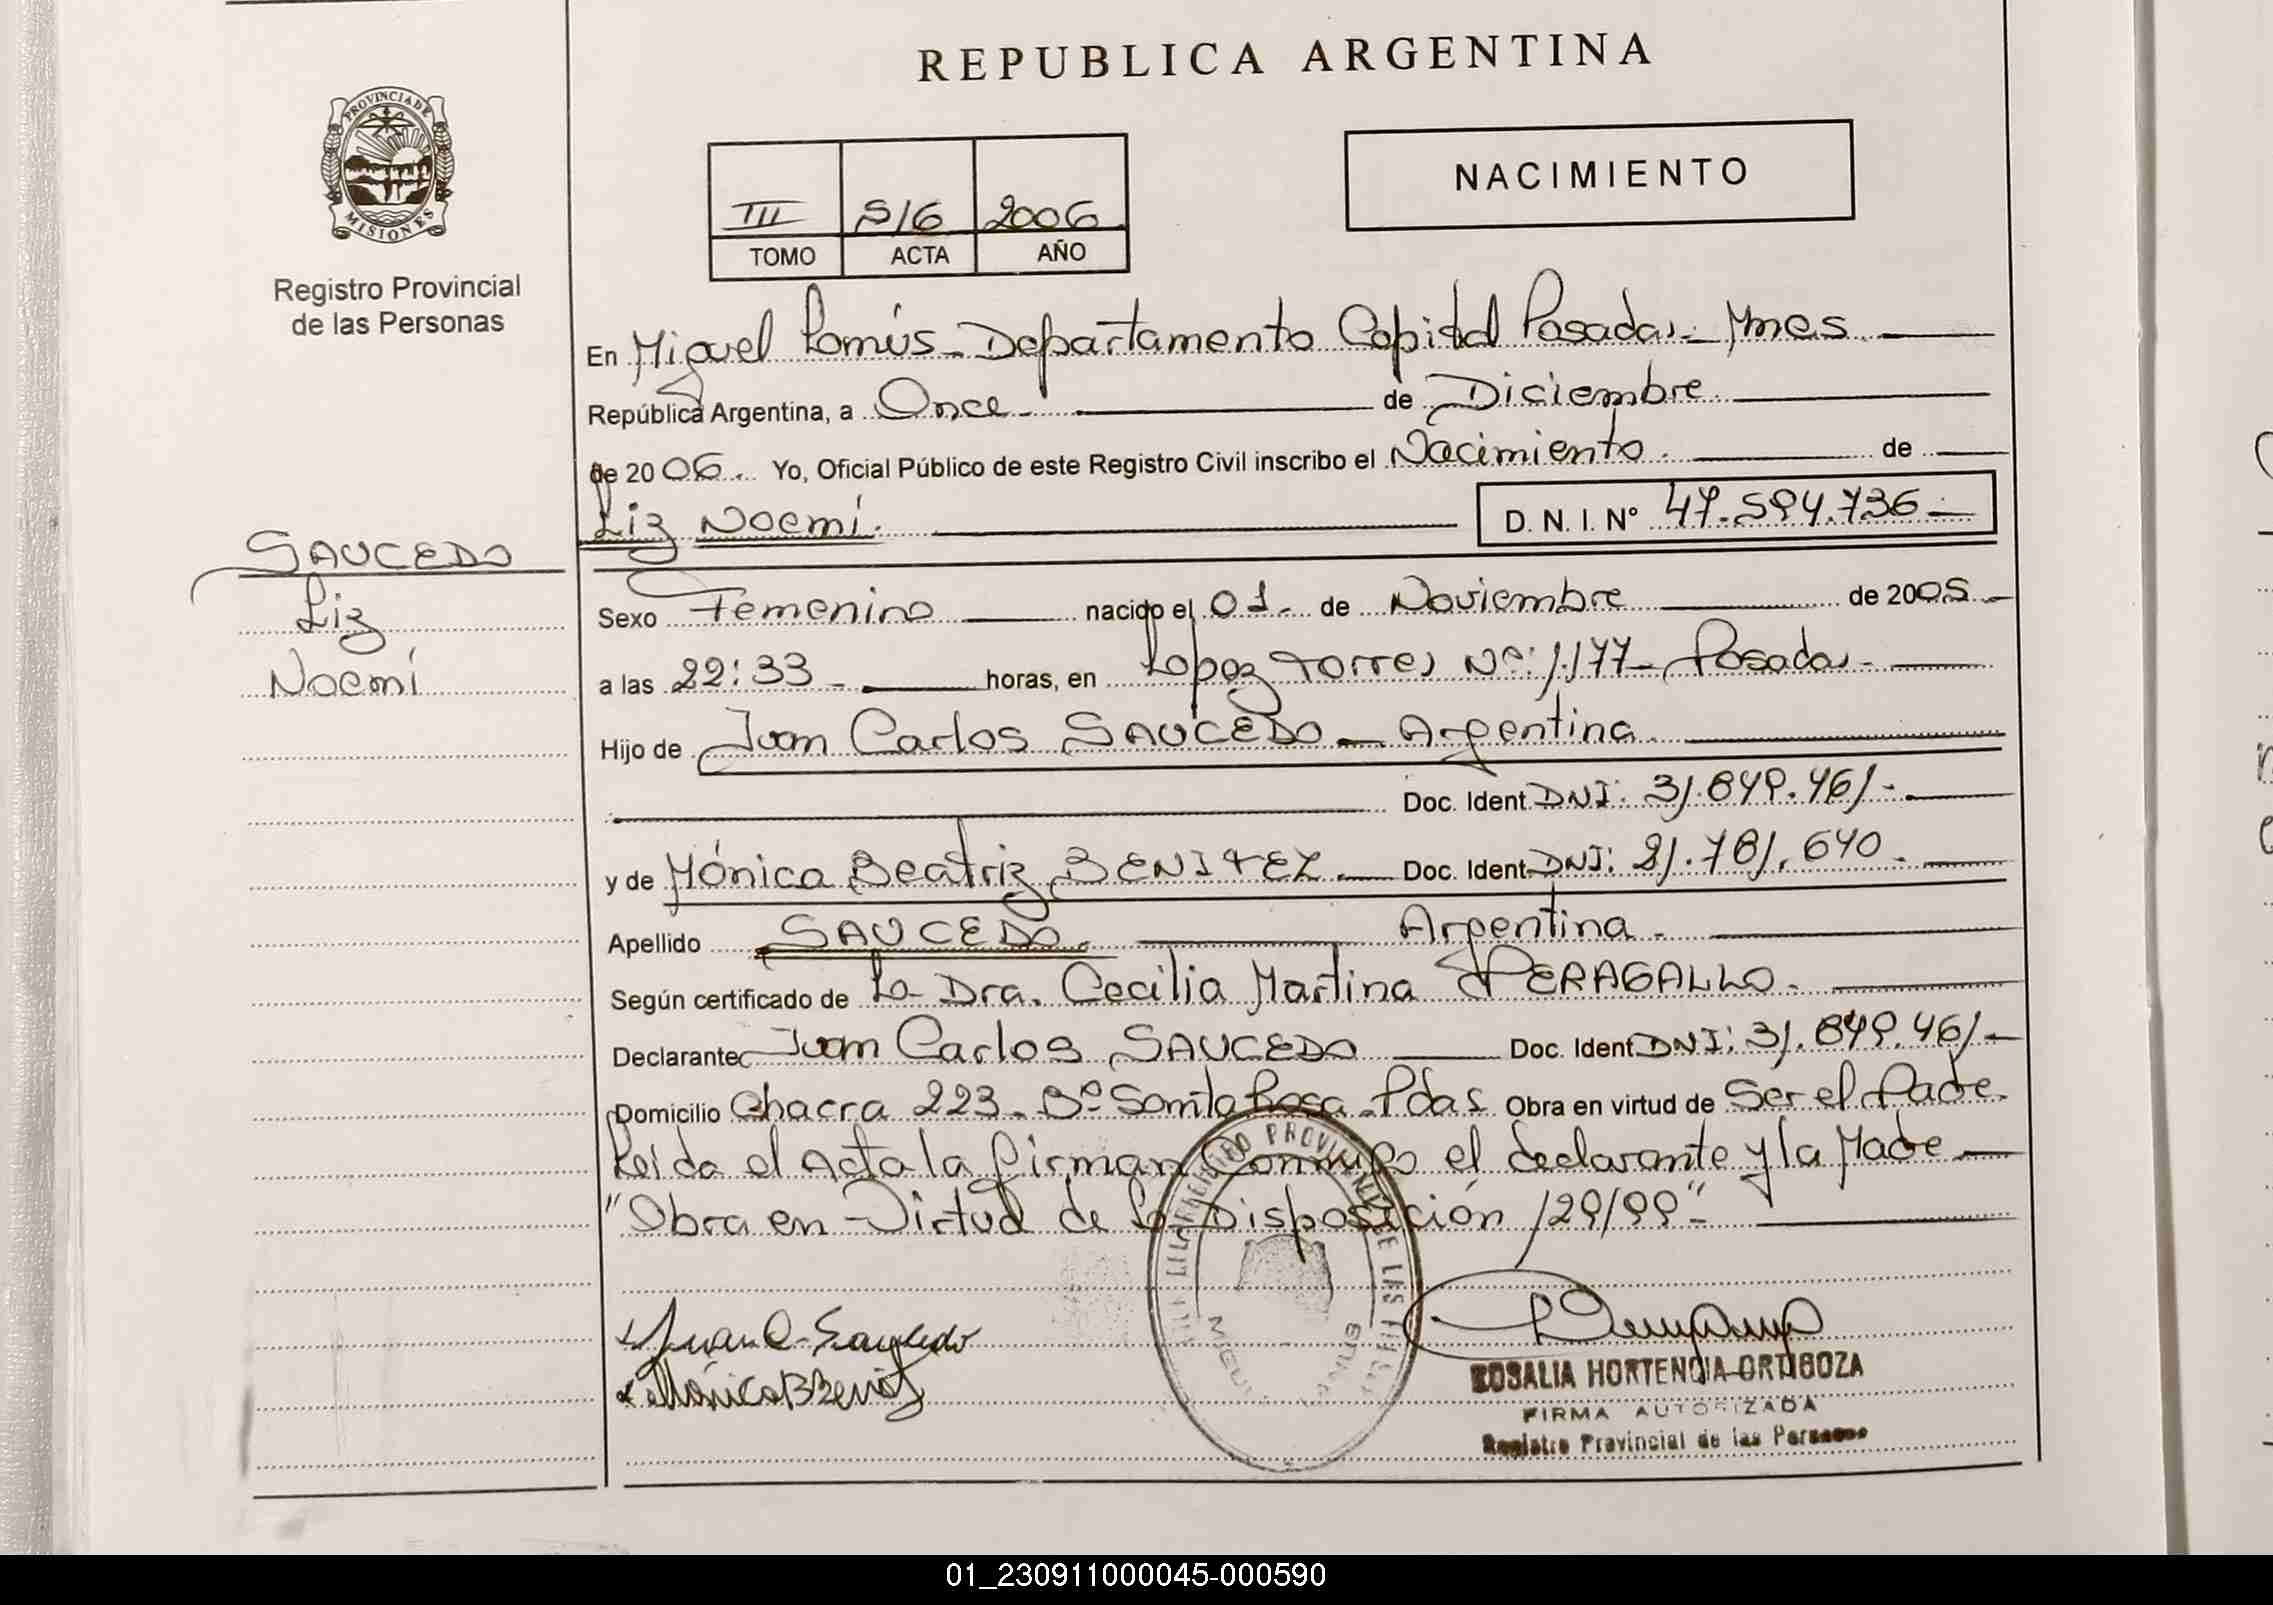 REPUBLICA ARGENTINA
PROVINCIA DE
MISIONES
Registro Provincial
de las Personas
NACIMIENTO
III 516 2006
TOMO ACTA AÑO
En Miguel Lanús - Departamento Capital Posadas - Mnes.
República Argentina, a Once - de Diciembre
de 2006. Yo, Oficial Público de este Registro Civil inscribo el Nacimiento. de
Liz Noemí. D. N. I. Nº 47.594.736 -
SAUCEDO
Liz
Noemí
Sexo Femenino nacido el 01 - de Noviembre de 2005 -
a las 22:33 - horas, en Lopez Torres Nº: 1.177 - Posadas -
Hijo de Juan Carlos SAUCEDO - Argentina
Doc. Ident. DNI: 31.849.461 -
y de Mónica Beatriz BENITEZ - Doc. Ident. DNI: 21.781.640 -
Apellido SAUCEDO. Argentina -
Según certificado de La Dra. Cecilia Martina PERAGALLO -
Declarante Juan Carlos SAUCEDO Doc. Ident. DNI: 31.849.461 -
Domicilio Chacra 223 - Bº Santa Rosa - Pdas Obra en virtud de Ser el Padre.
Leida el Acta la firman Conmigo el declarante y la Madre -
"Obra en Virtud de la Disposición 129/99" -
REGISTRO PROVINCIAL DE LAS
Juan C. Saucedo
Mónica B Benitez
ROSALIA HORTENCIA ORTIGOZA
FIRMA AUTORIZADA
Registro Provincial de las Personas
01_230911000045-000590